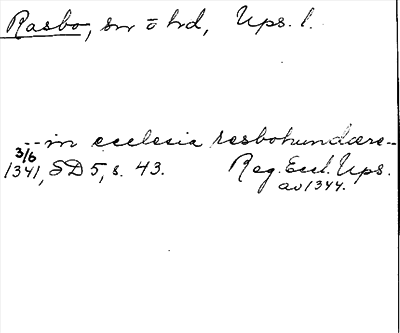 Rasbo, sn o hd, Ups. l.
-- in ecclesia resbohundære --
3/6
1341, SD 5, s. 43. Reg. Eccl. Ups.
av 1344.